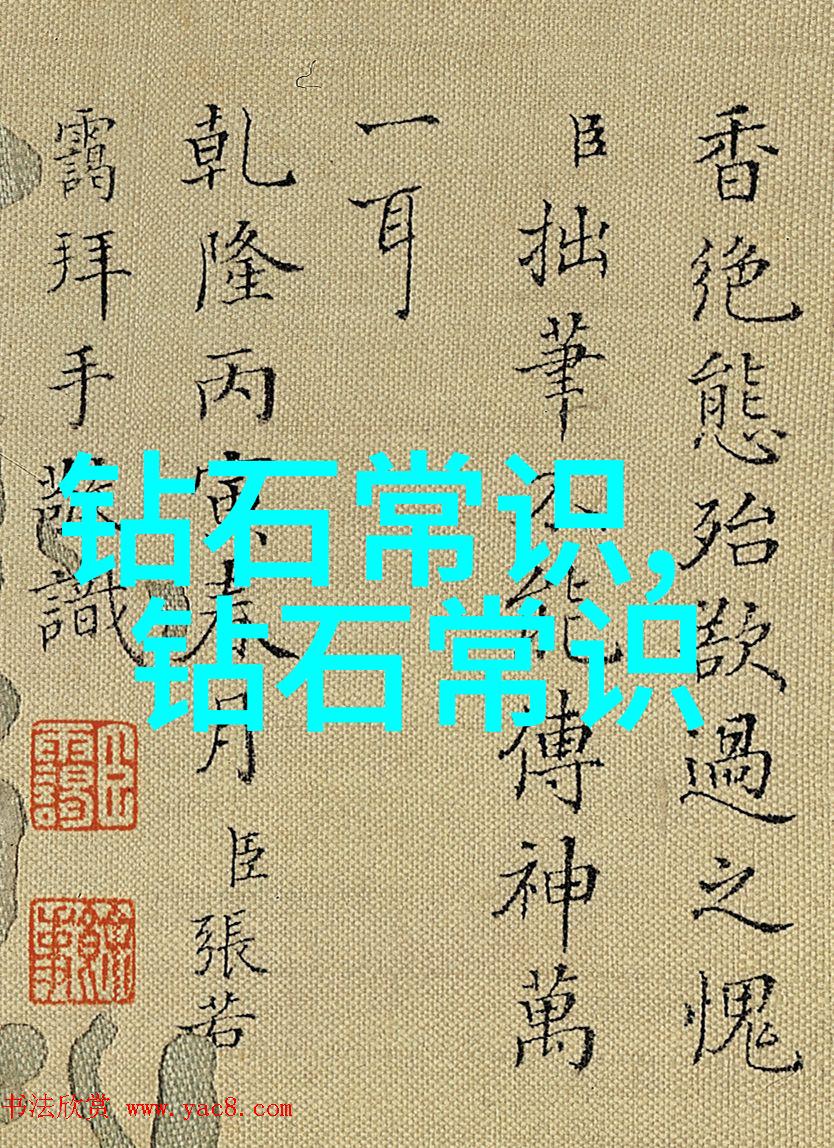 香絶態殆欲過之愧
臣拙筆不能傳神萬
一耳
乾隆丙寅春月臣張若
靄拜手敬識
钻石常识,
钻石常识
书法欣赏 www.yac8.com